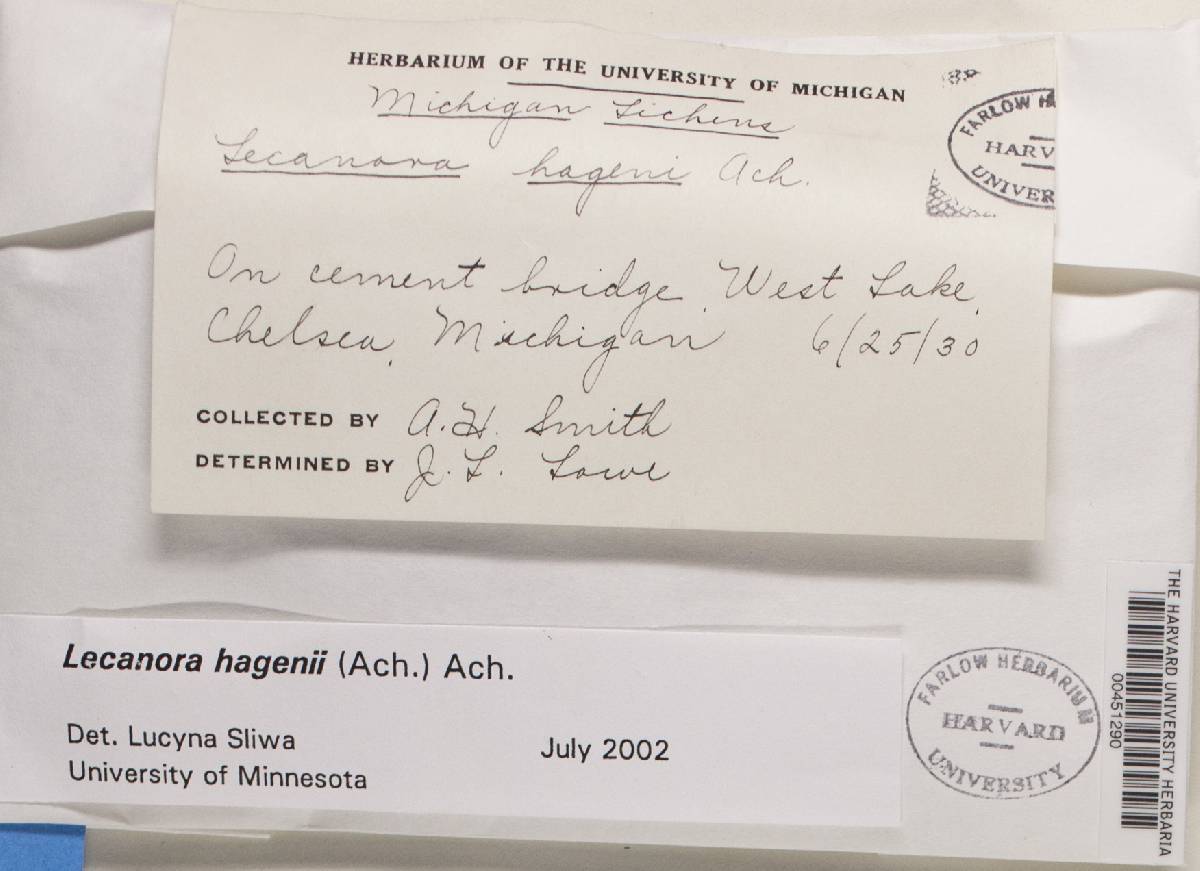 HERBARIUM OF THE UNIVERSITY OF MICHIGAN
Michigan Lichens
Lecanora hageni Ach.
FARLOW H
HARV
UNIVER
On cement bridge, West Lake,
Chelsea, Michigan 6/25/30
COLLECTED BY A.H. Smith
DETERMINED BY J. L. Lowe
Lecanora hagenii (Ach.) Ach.
Det. Lucyna Sliwa July 2002
University of Minnesota
FARLOW HERBARIUM
HARVARD
UNIVERSITY
THE HARVARD UNIVERSITY HERBARIA
00451290